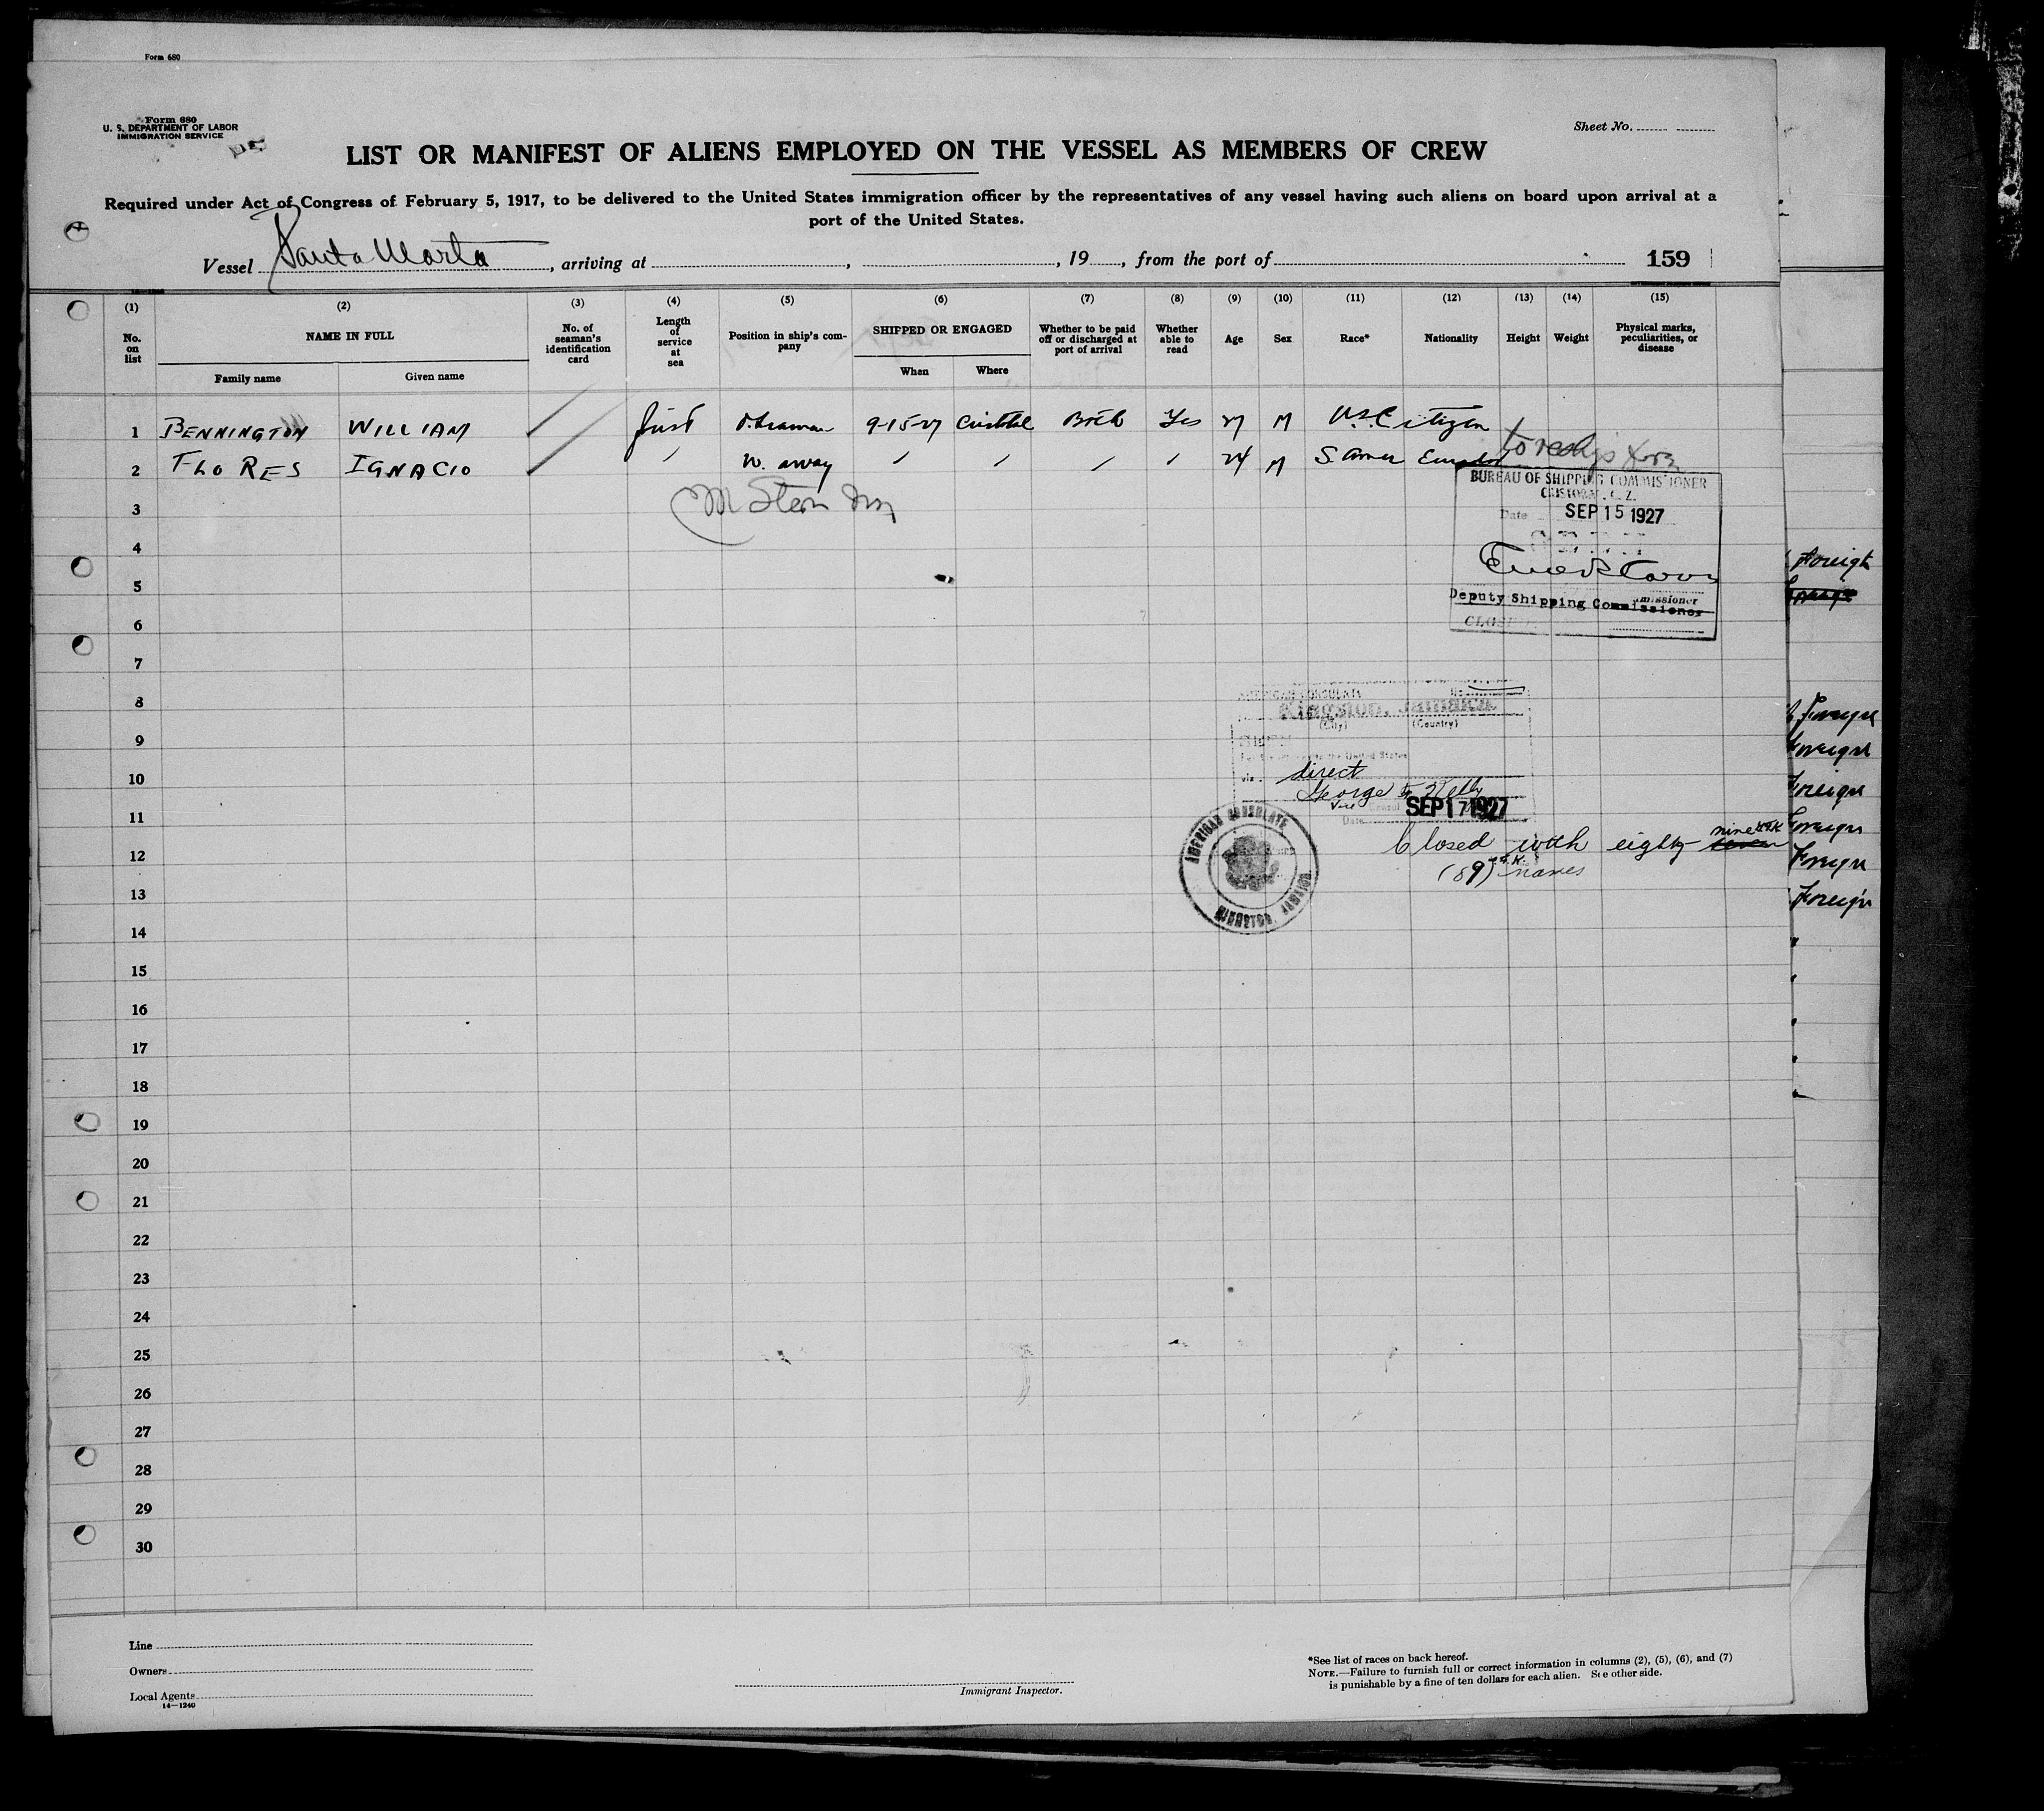 Form 680
Form 680
U. S. DEPARTMENT OF LABOR
IMMIGRATION SERVICE
Sheet No.
LIST OR MANIFEST OF ALIENS EMPLOYED ON THE VESSEL AS MEMBERS OF CREW
Required under Act of Congress of February 5, 1917, to be delivered to the United States immigration officer by the representatives of any vessel having such aliens on board upon arrival at a
port of the United States.
Vessel Santa Marta, arriving at , , 19 , from the port of 159
(1) (2) (3) (4) (5) (6) (7) (8) (9) (10) (11) (12) (13) (14) (15)
No. on list NAME IN FULL No. of seaman's identification card Length of service at sea Position in ship's company SHIPPED OR ENGAGED Whether to be paid off or discharged at port of arrival Whether able to read Age Sex Race* Nationality Height Weight Physical marks, peculiarities, or disease
Family name Given name When Where
1 BENNINGTON WILLIAM first 9-15-27 Cristobal Both Yes 27 M U.S. Citizen
2 FLORES IGNACIO W. away 24 M S. Amer
3
4
5
6
7
8
9
10
11
12
13
14
15
16
17
18
19
20
21
22
23
24
25
26
27
28
29
30
M Stern
BUREAU OF SHIPPING COMMISSIONER
CRISTOBAL, C. Z.
Date SEP 15 1927
Deputy Shipping Commissioner
AMERICAN CONSULATE
Kingston, Jamaica.
(City) (Country)
direct
George
Vice
SEP 17 1927
Date
Closed with eighty nine
(89) names
AMERICAN CONSULATE
KINGSTON, JAMAICA
Foreign
Foreign
Foreign
Foreign
Foreign
Foreign
Foreign
Line
Owners
Local Agents
14—1240
Immigrant Inspector.
*See list of races on back hereof.
NOTE.—Failure to furnish full or correct information in columns (2), (5), (6), and (7)
is punishable by a fine of ten dollars for each alien. See other side.